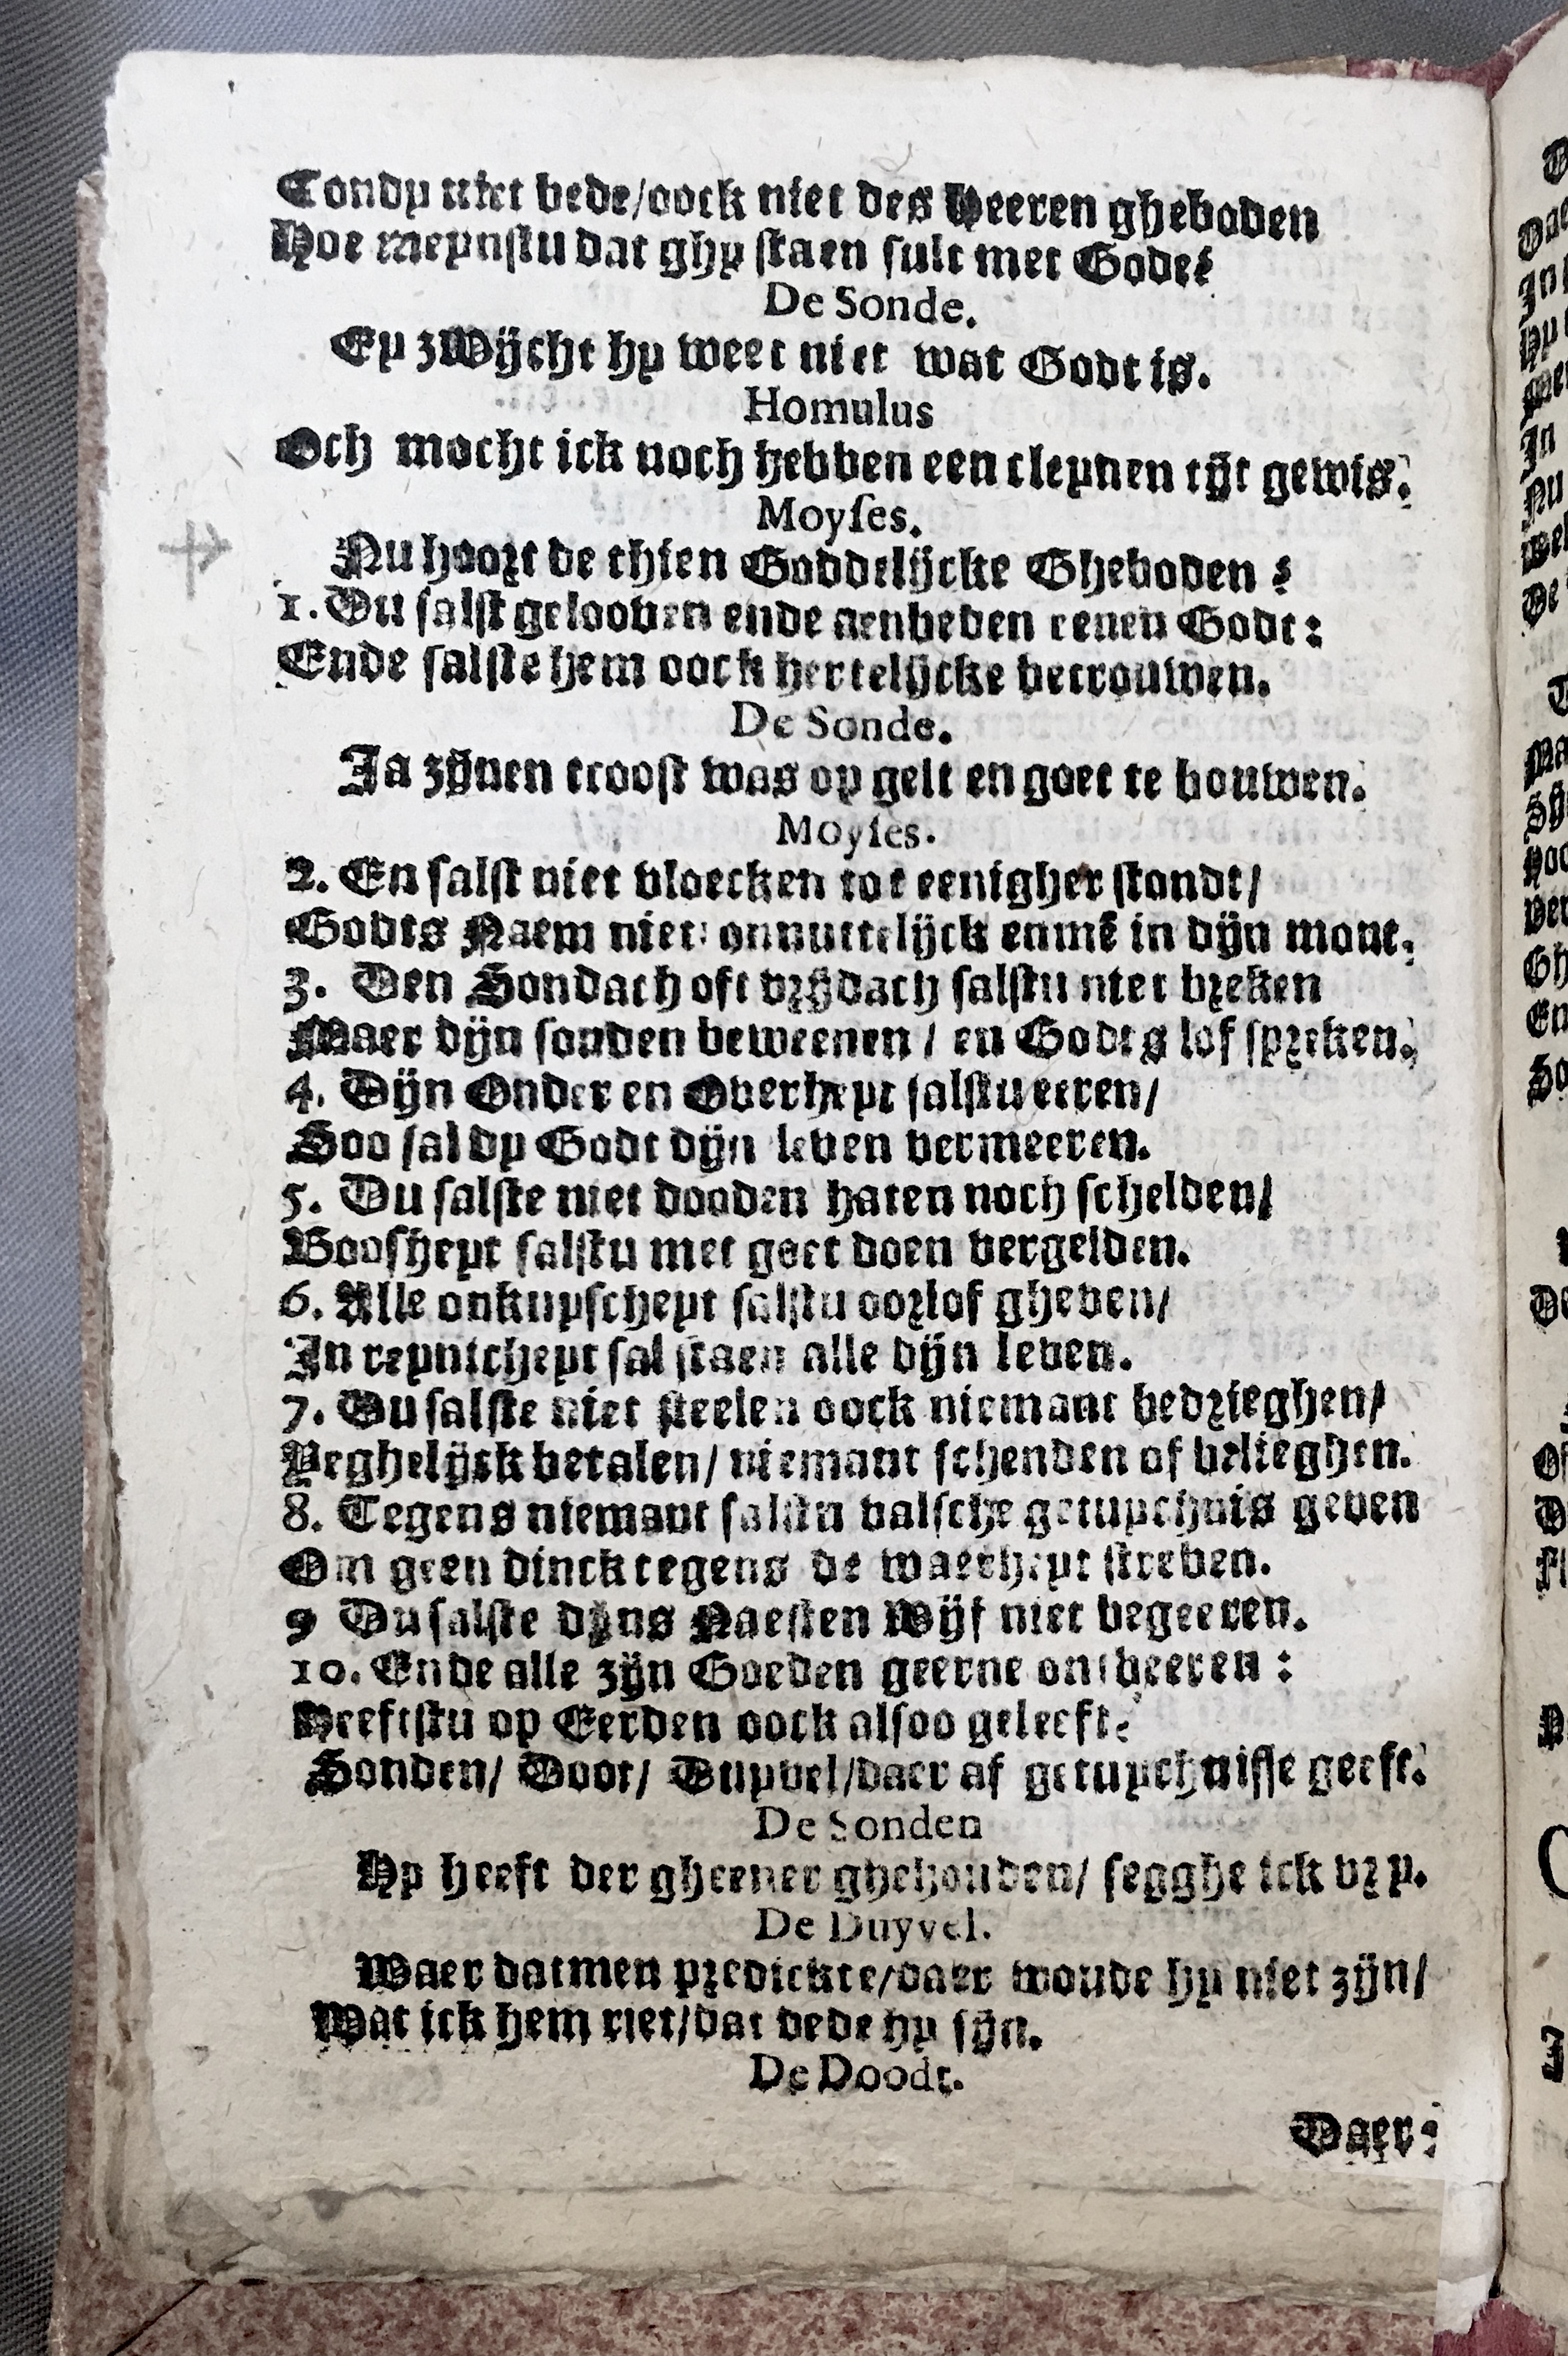 Condy niet bede/oock niet des Heeren gheboden
Hoe meynstu dat ghy staen sult met Gode?
De Sonde.
Ey zwijcht hy weet niet wat Godt is.
Homulus
Och mocht ick noch hebben een cleynen tijt gewis.
Moyses.
Nu hoort de thien Goddelijcke Gheboden :
1. Du salst gelooven ende aenbeden eenen Godt:
Ende salste hem oock hertelijcke betrouwen.
De Sonde.
Ja zijnen troost was op gelt en goet te bouwen.
Moyses.
2. En salst niet vloecken tot eenigher stondt/
Godts Naem niet onnuttelijck enmē in dijn mont.
3. Den Sondach oft vrijdach salstu niet breken
Maer dijn sonden beweenen / en Godts lof spreken.
4. Dijn Onder en Overheyt salstu eeren/
Soo sal dy Godt dijn leven vermeeren.
5. Du salste niet dooden haten noch schelden/
Boosheyt salstu met goet doen vergelden.
6. Alle onkuyscheyt salstu oorlof gheven/
In reynicheyt sal staen alle dijn leven.
7. Du salste niet steelen oock niemant bedrieghen/
Yeghelijck betalen/ niemant schenden of belieghen.
8. Tegens niemant salstu valsche getuychnis geven
Om geen dinck tegens de waerheyt streven.
9 Du salste dijns Naesten Wijf niet begeeren.
10. Ende alle zijn Goeden geerne ontbeeren :
Heeftstu op Eerden oock alsoo geleeft?
Sonden/ Doot/ Duyvel/daer af getuychnisse geeft.
De Sonden
Hy heeft der gheener ghehouden/ segghe ick vry.
De Duyvel.
Waer datmen predickte/daer woude hy niet zijn/
Wat ick hem riet/dat dede hy sijn.
De Doodt.
Daer: